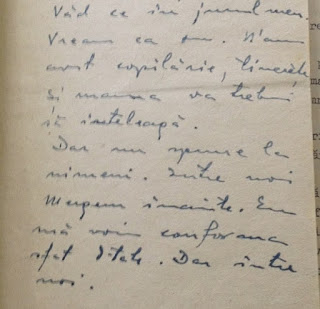 Văd ce în jurul meu.
Vream ca tu. N'am
avut copilărie, tinerețe
și mama va trebui
să înteleagă.
Dar nu spune la
nimeni. Intre noi
Mergem înainte. Eu
mă voiu conforma
sfat Dtale. Dar între
noi.